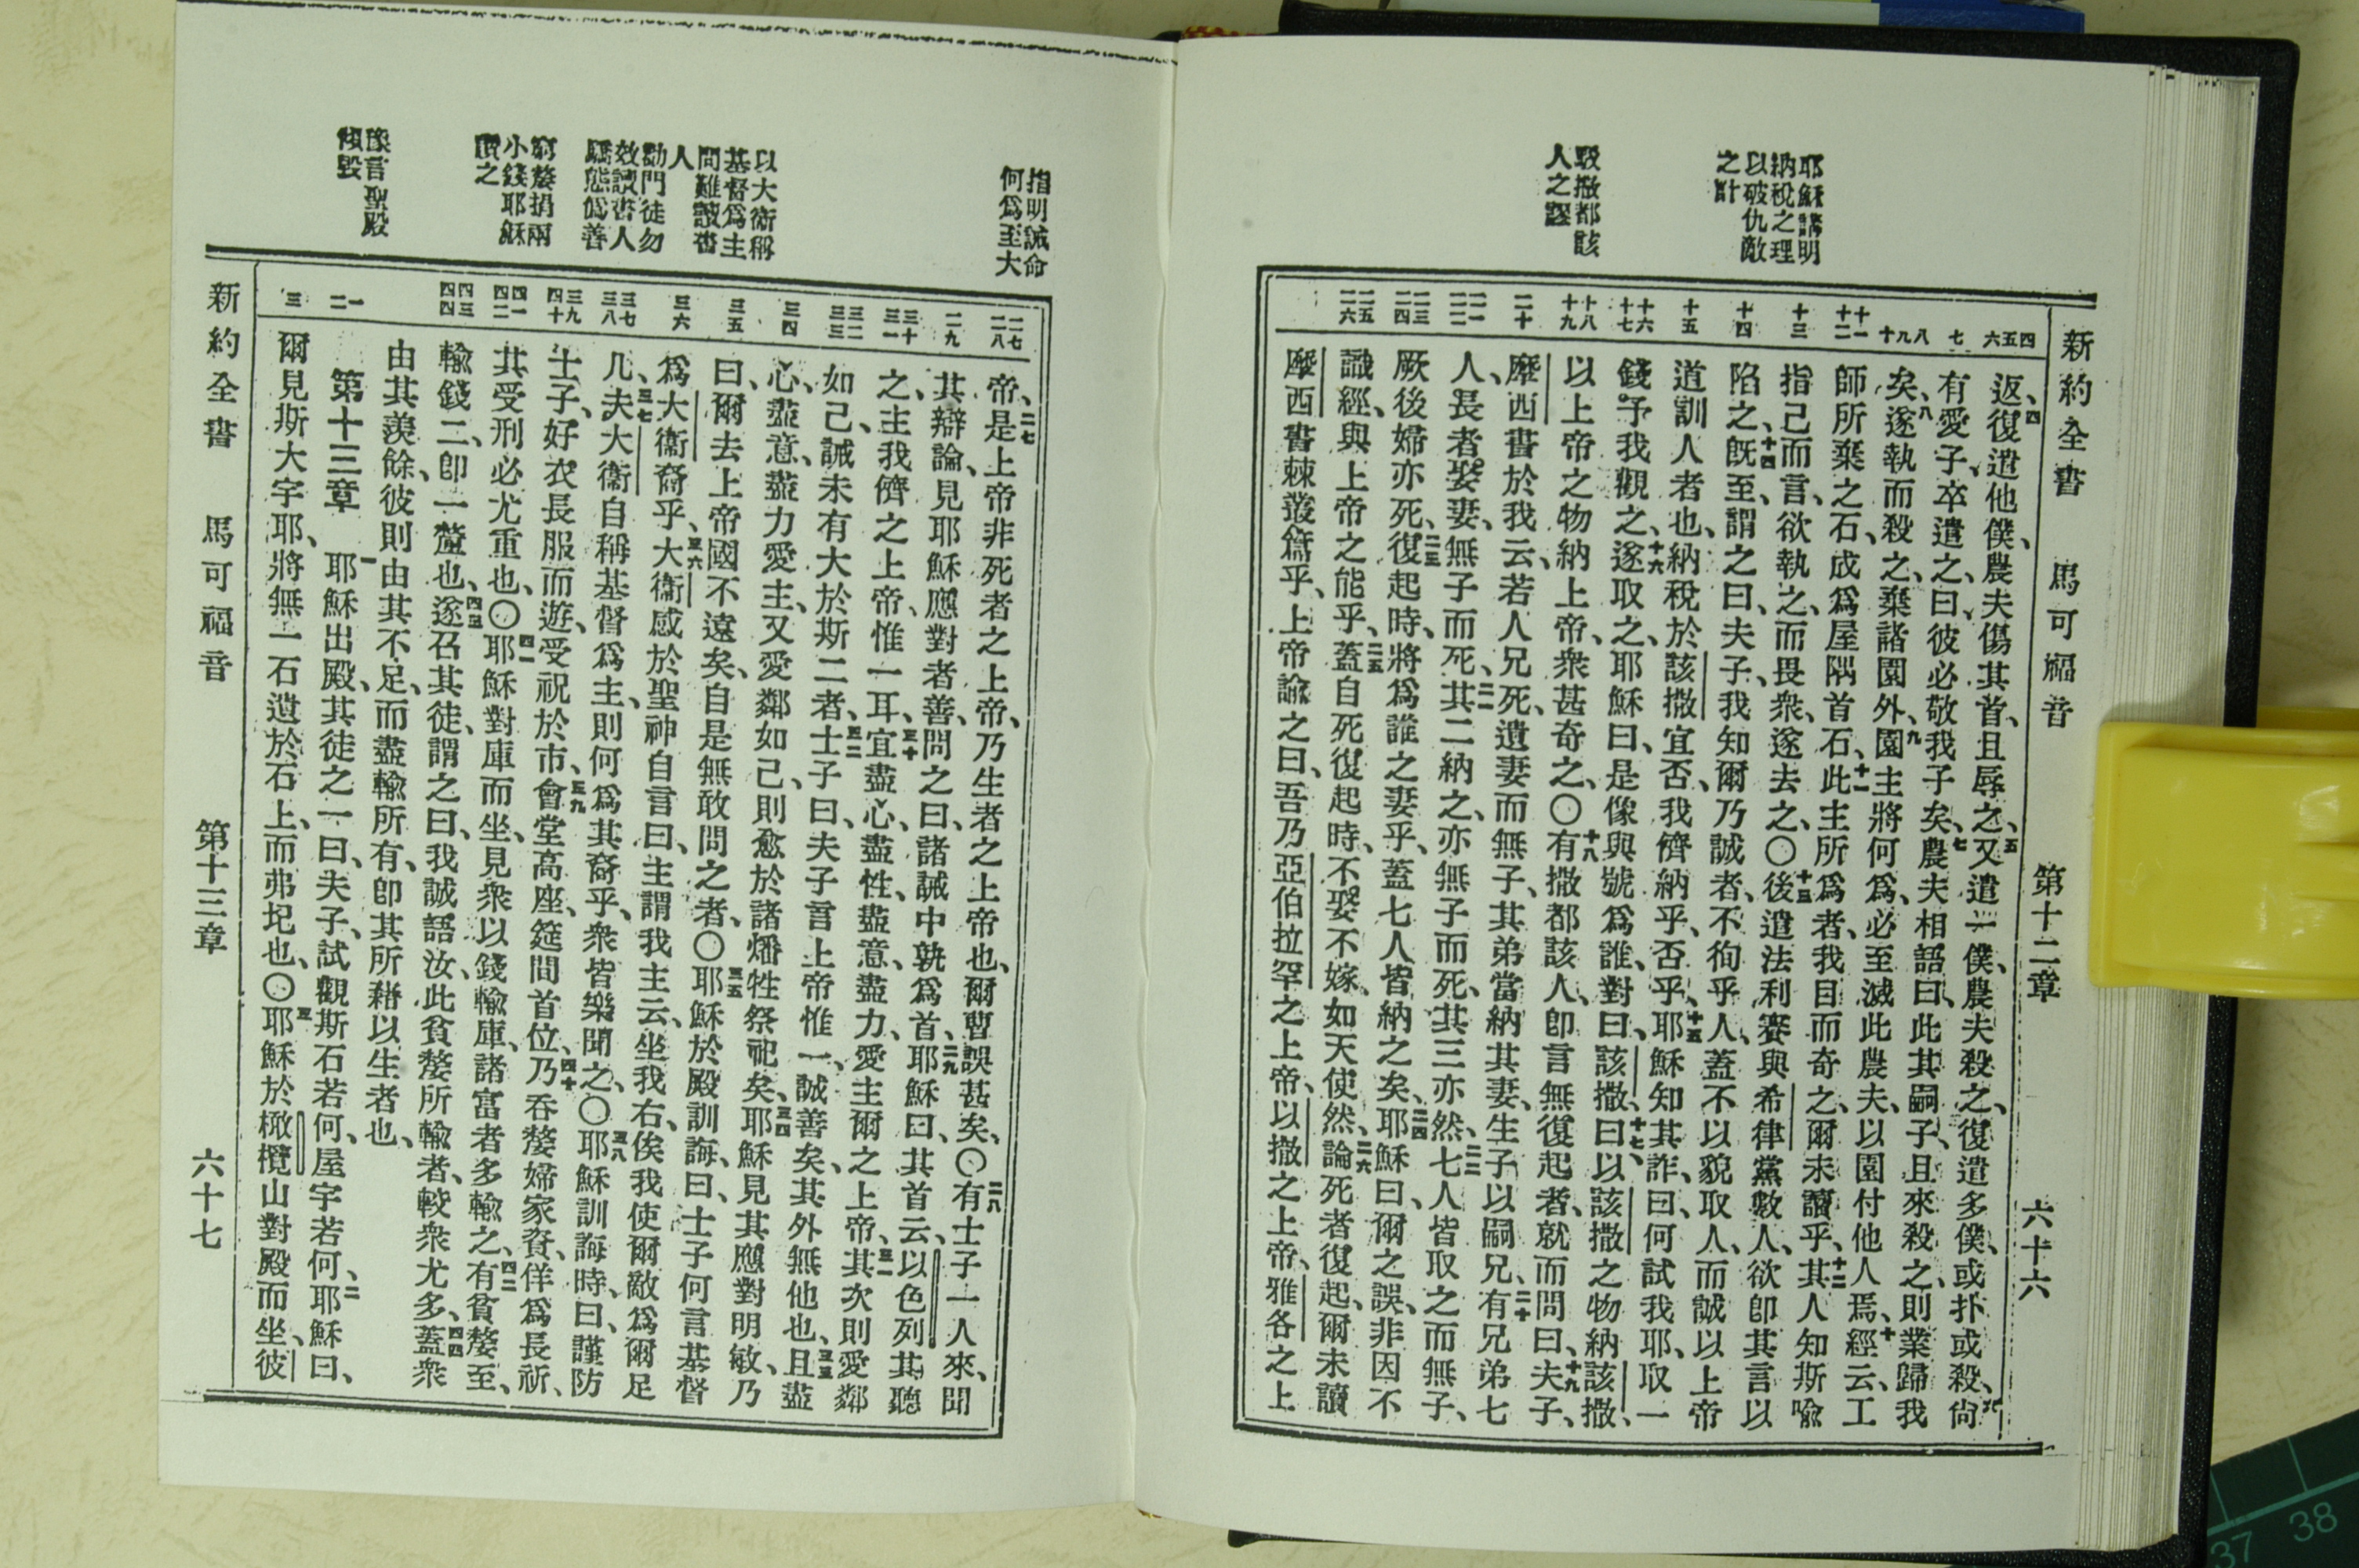 新約全書 馬可福音 第十二章 六十六
耶穌講明
納稅之理
以破仇敵
之計
駁撒都該
人之謬
四
五
六
七
八
九
十
十一
十二
十三
十四
十五
十六
十七
十八
十九
二十
二一
二二
二三
二四
二五
二六
返、四復遣他僕、農夫傷其首、且辱之、五又遣一僕、農夫殺之、復遣多僕、或扑或殺、六尙
有愛子、卒遣之、曰、彼必敬我子矣、七農夫相語曰、此其嗣子、且來殺之、則業歸我
矣、八遂執而殺之、棄諸園外、九園主將何爲、必至滅此農夫、以園付他人焉、十經云、工
師所棄之石、成爲屋隅首石、十一此主所爲者、我目而奇之、爾未讀乎、十二其人知斯喩
指己而言、欲執之、而畏衆、遂去之、〇十三後遣法利賽與希律黨數人、欲卽其言以
陷之、十四旣至、謂之曰、夫子、我知爾乃誠者、不徇乎人、蓋不以貌取人、而誠以上帝
道訓人者也、納稅於該撒宜否、我儕納乎、否乎、十五耶穌知其詐、曰、何試我耶、取一
錢予我觀之、十六遂取之、耶穌曰、是像與號爲誰、對曰、該撒、十七曰、以該撒之物納該撒、
以上帝之物納上帝、衆甚奇之、〇十八有撒都該人、卽言無復起者、就而問曰、十九夫子、
摩西書於我云、若人兄死、遺妻而無子、其弟當納其妻、生子以嗣兄、二十有兄弟七
人、長者娶妻、無子而死、二一其二納之、亦無子而死、其三亦然、二二七人皆取之而無子、
厥後婦亦死、二三復起時、將爲誰之妻乎、蓋七人皆納之矣、二四耶穌曰、爾之誤、非因不
識經、與上帝之能乎、二五蓋自死復起時、不娶不嫁、如天使然、二六論死者復起、爾未讀
摩西書棘叢篇乎、上帝諭之曰、吾乃亞伯拉罕之上帝、以撒之上帝、雅各之上
指明誡命
何爲至大
以大衞稱
基督爲主
問難讀書
人
勸門徒勿
效讀書人
驕態僞善
窮嫠捐兩
小錢耶穌
讚之
豫言聖殿
傾毀
二七
二八
二九
三十
三一
三二
三三
三四
三五
三六
三七
三八
三九
四十
四一
四二
四三
四四
一
二
三
帝、二七是上帝非死者之上帝、乃生者之上帝也、爾曹誤甚矣、〇二八有士子一人來、聞
其辯論、見耶穌應對者善、問之曰、諸誡中孰爲首、二九耶穌曰、其首云、以色列其聽
之、主我儕之上帝、惟一耳、三十宜盡心、盡性、盡意、盡力、愛主爾之上帝、三一其次則愛鄰
如己、誡未有大於斯二者、三二士子曰、夫子言上帝惟一、誠善矣、其外無他也、三三且盡
心、盡意、盡力愛主、又愛鄰如己、則愈於諸燔牲祭祀矣、三四耶穌見其應對明敏、乃
曰、爾去上帝國不遠矣、自是無敢問之者、〇三五耶穌於殿訓誨、曰、士子何言基督
爲大衞裔乎、三六大衞感於聖神自言曰、主謂我主云、坐我右、俟我使爾敵爲爾足
几、三七夫大衞自稱基督爲主、則何爲其裔乎、衆皆樂聞之、〇三八耶穌訓誨時、曰、謹防
士子、好衣長服而遊、受祝於市、三九會堂高座、筵間首位、四十乃吞嫠婦家資、佯爲長祈、
其受刑必尤重也、〇四一耶穌對庫而坐、見衆以錢輸庫、諸富者多輸之、四二有貧嫠至、
輸錢二、卽一釐也、四三遂召其徒、謂之曰、我誠語汝、此貧嫠所輸者、較衆尤多、四四蓋衆
由其羨餘、彼則由其不足、而盡輸所有、卽其所藉以生者也、
第十三章 一耶穌出殿、其徒之一曰、夫子、試觀斯石若何、屋宇若何、二耶穌曰、
爾見斯大宇耶、將無一石遺於石上、而弗圮也、〇三耶穌於橄欖山對殿而坐、彼
新約全書 馬可福音 第十三章 六十七
37 38